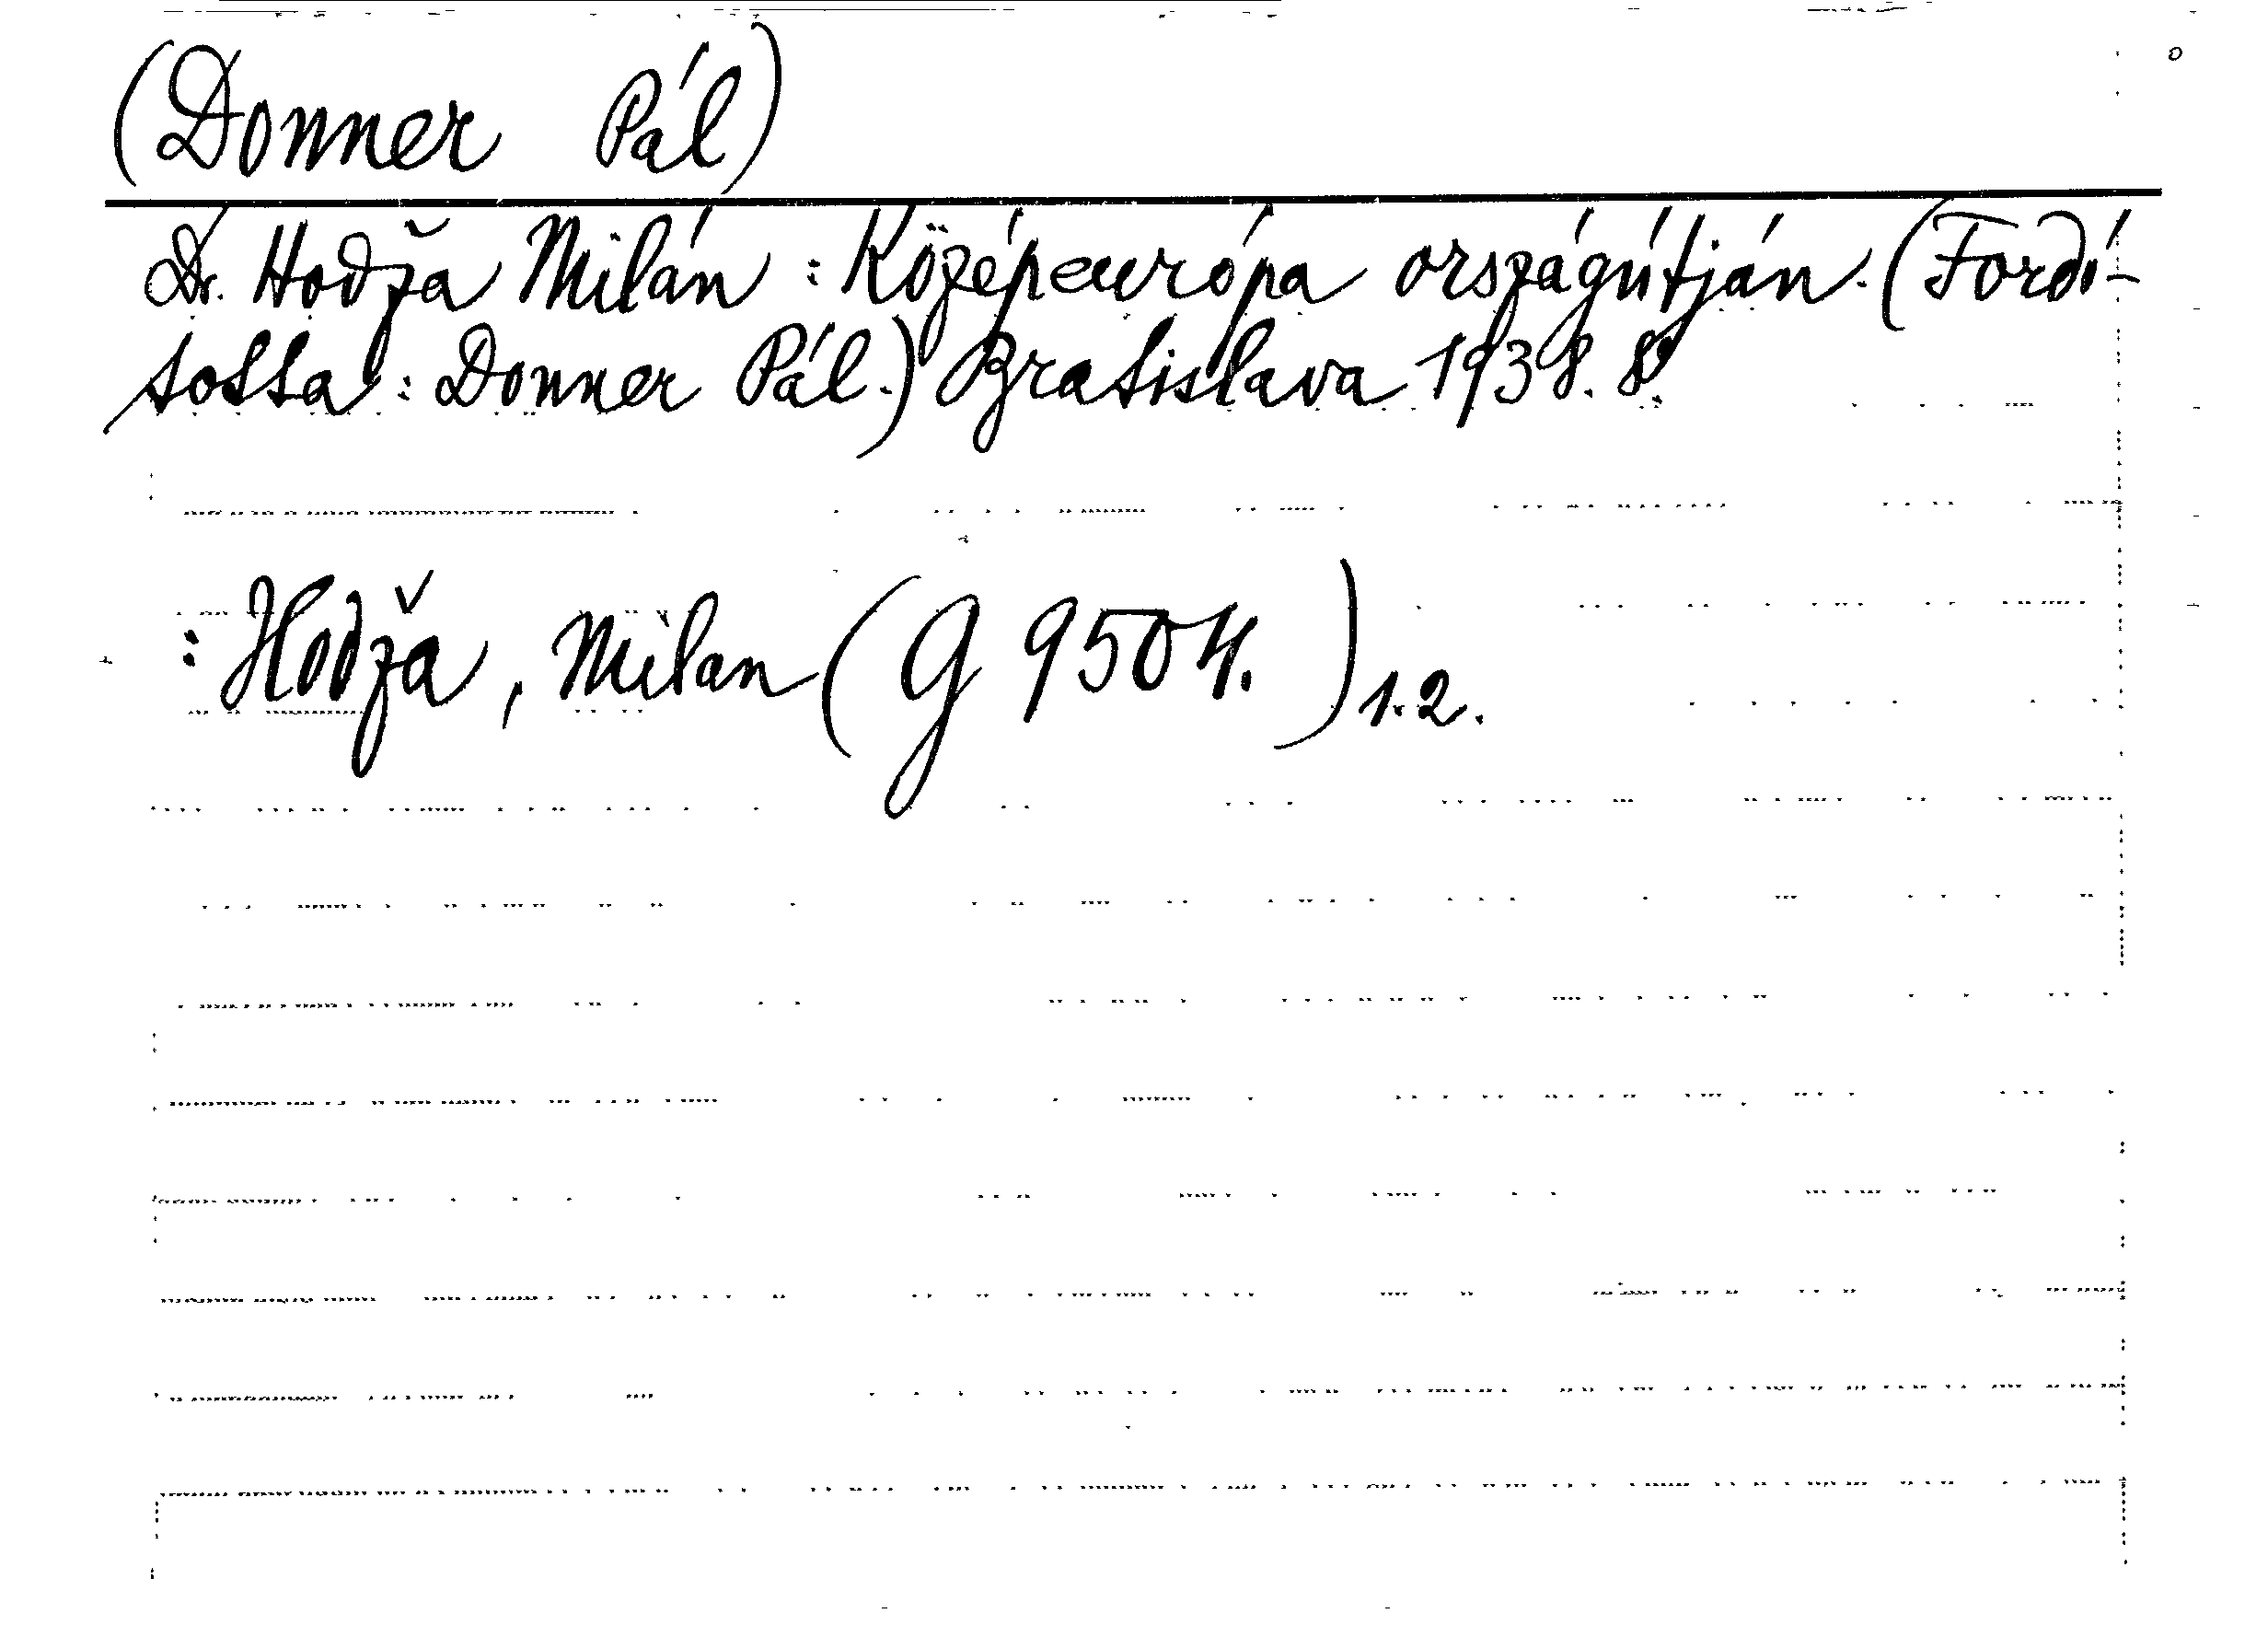 (Donner Pál)
Dr. Hodža Milán : Középeurópa országútján. (Fordí-
totta : Donner Pál.) Bratislava 1938. 8°.
: Hodža, Milan (G 9504.) 1.2.